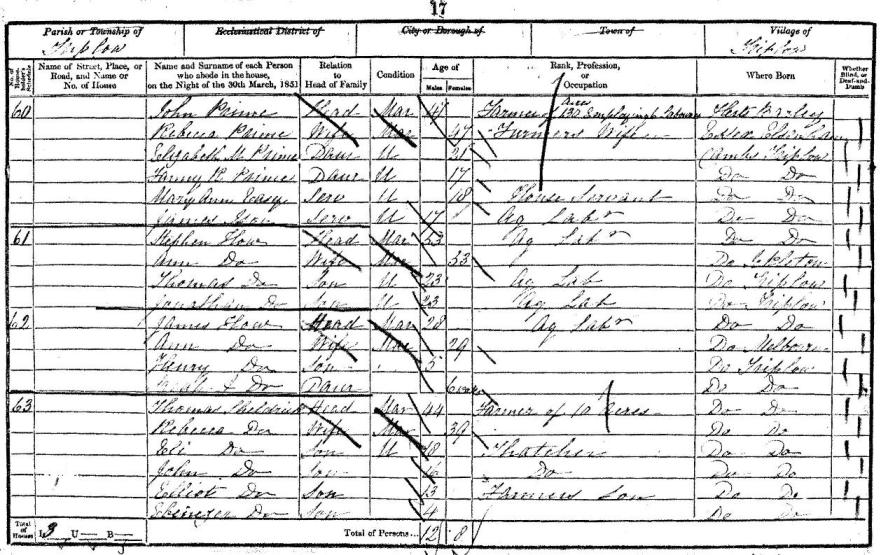 17
Parish or Township of Ecclesiastical District of City or Borough of Town of Village of
Triplow Triplow
No. of House-holder's Schedule Name of Street, Place, or Road, and Name or No. of House Name and Surname of each Person who abode in the house, on the Night of the 30th March, 1851 Relation to Head of Family Condition Age of Males Females Rank, Profession, or Occupation Where Born Whether Blind, or Deaf-and-Dumb
60 John Prime Head Mar Farmer of 130 Acres Employing Labourers Herts Barley
Rebecca Prime Wife Mar 47 Farmers Wife Essex Elsenham
Elizabeth M Prime Daur U 21 Cambs Triplow
Fanny R Prime Daur U 17 Do Do
Mary Ann Easy Serv U 18 House Servant Do Do
James Serv U 17 Ag Labr Do Do
61 Stephen Flow Head Mar 53 Ag Labr Do Do
Ann Do Wife Mar 53 Do Ickleton
Thomas Do Son U 23 Ag Lab Do Triplow
Jonathan Do Son U 23 Ag Lab Do Triplow
62 James Flow Head Mar 28 Ag Labr Do Do
Ann Do Wife Mar 29 Do Melbourn
Henry Do Son 5 Do Triplow
Do Daur Do Do
63 Thomas Head Mar 44 Farmer of 10 acres Do Do
Rebecca Do Wife Mar 39 Do Do
Eli Do Son U 18 Thatcher Do Do
John Do Son 16 Do Do Do
Elliot Do Son 13 Farmers Son Do Do
Ebenezer Do Son 4 Do Do
Total of Houses I 3 U — B — Total of Persons... 12 8